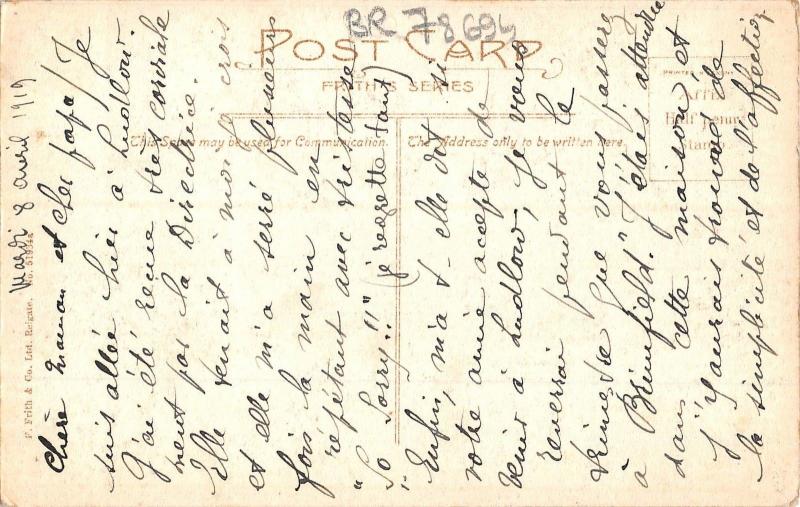 BR 78694
POST CARD
FRITH'S SERIES
This Space may be used for Communication.
The Address only to be written here.
PRINTED IN
Affix
Half penny
Stamp
F. Frith & Co. Ltd. Reigate. No. 51934A
Mardi 8 avril 1919
Chère maman et cher papa / Je
suis allée hier à Ludlow.
J'ai été reçue très cordiale
ment par la Directrice.
Elle tenait à moi crois
et elle m'a serré plusieurs
fois la main en
répétant avec tristesse
"So Sorry!!" (je regrette tant)
"Enfin, m'a-t-elle dit si
votre amie accepte de
venir à Ludlow, je vous
reverrai pendant le
trimestre que vous passerez
à Brimfield." J'étais attendue
dans cette maison et
j'y aurais trouvé de
la simplicité et de l'affection